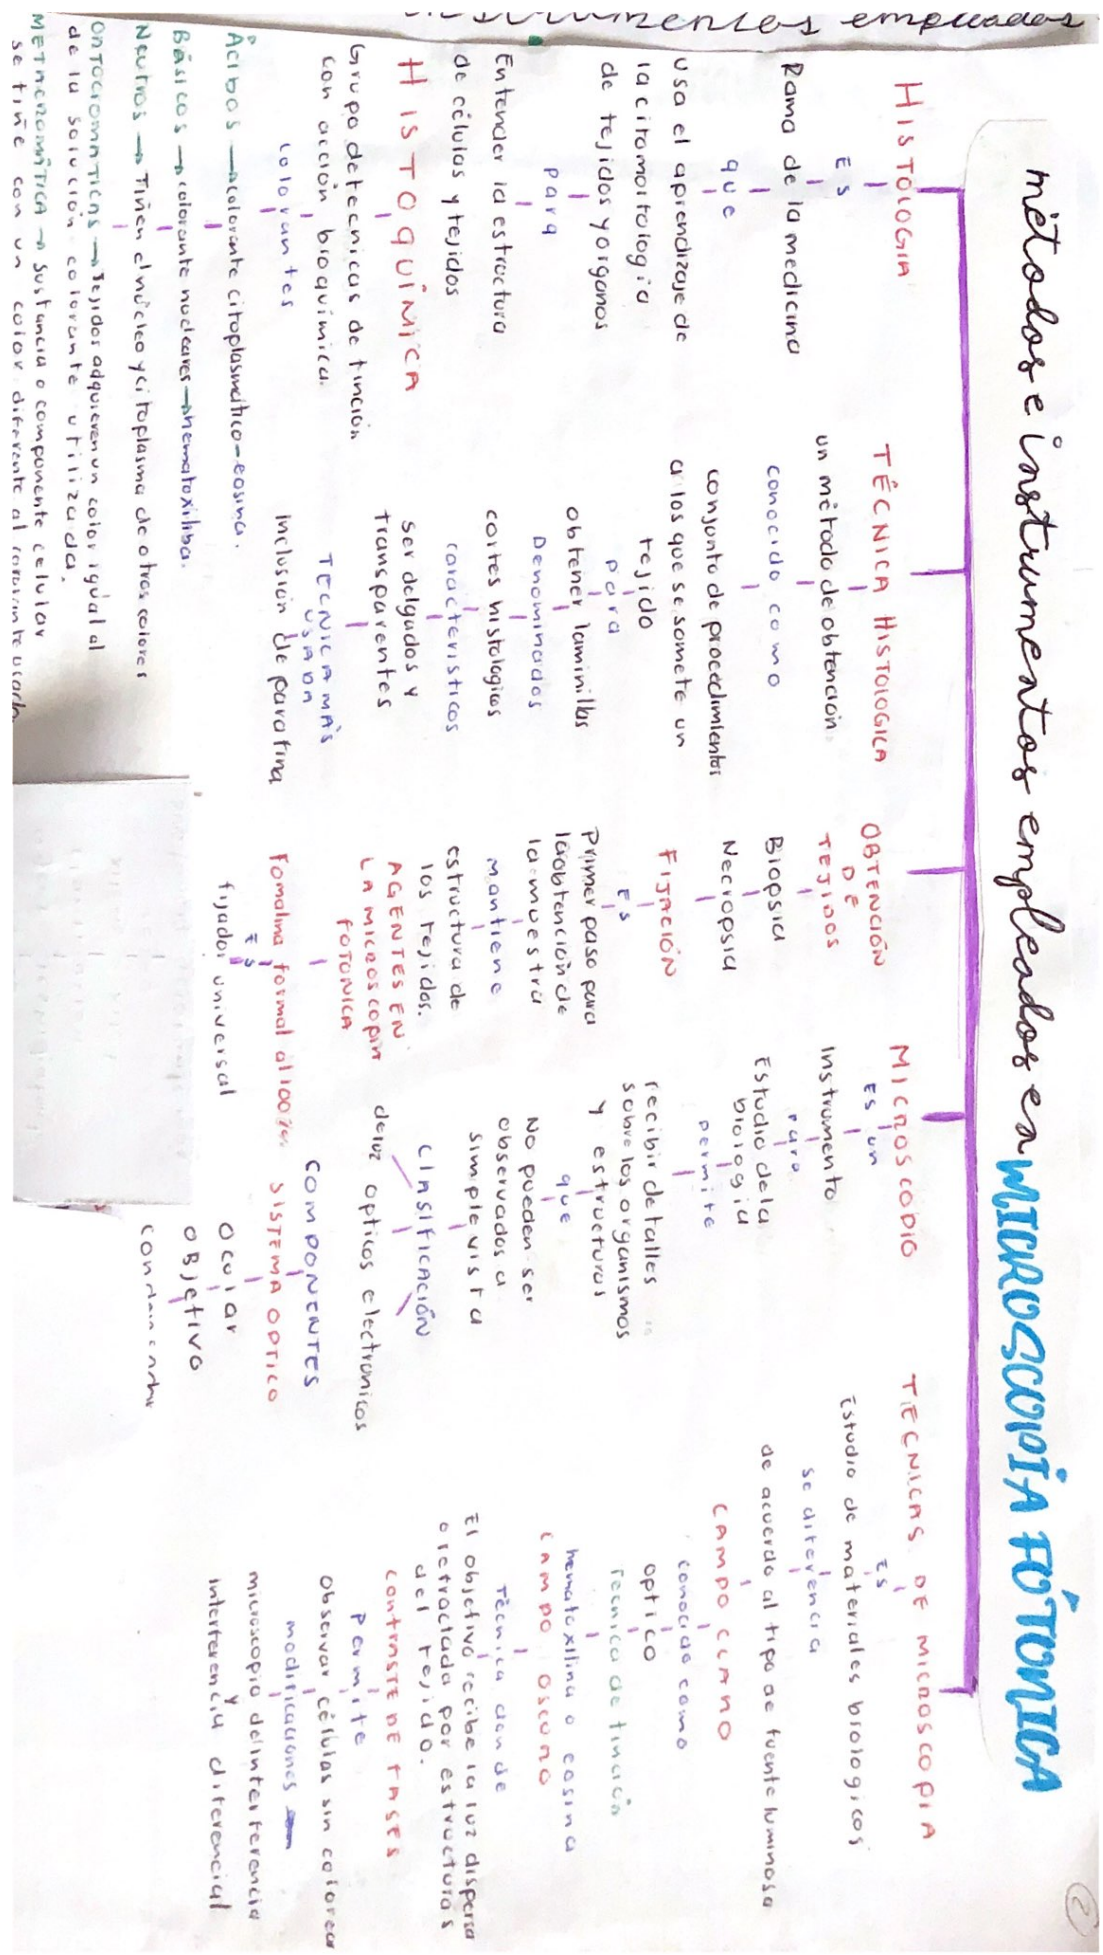 métodos e instrumentos empleados en MICROSCOPÍA FÓTONICA
2
instrumentos empleados
HISTOLOGIA
ES
Rama de la medicina
que
usa el aprendizaje de
la citomoitologia
de tejidos y organos
para
Entender la estructura
de células y tejidos
HISTOQUÍMICA
Grupo de tecnicas de tinción
con acción bioquímica.
colorantes
Ácibos → colorante citoplasmático-eosina.
Básicos → colorante nucleares → hematoxiliba.
Neutros → Tiñen el núcleo y citoplasma de otros colores
Ontocromaticas → Tejidos adquieren un color igual al
de la solución colorante utilizada.
METACROMÁTICA → sustancia o componente celular
se tiñe con un color diferente al colorante usado.
TÉCNICA HISTOLOGICA
un método de obtención
conocido como
conjunto de procedimientos
a los que se somete un
tejido
para
obtener laminillas
Denominados
cortes histologicos
caracteristicos
ser delgados y
transparentes
TECNICA MÁS
USADA
inclusión de parafina
OBTENCIÓN
DE
TEJIDOS
Biopsia
Necropsia
FIJACIÓN
ES
Primer paso para
la obtención de
la muestra
mantiene
estructura de
los tejidos.
AGENTES EN
LA MICROSCOPIA
FOTONICA
Fomalina formal al 100%.
ES
fijador universal
MICROSCOPIO
ES un
Instrumento
para
Estudio de la
biología
permite
recibir detalles
sobre los organismos
y estructuras
que
No pueden ser
observados a
simple vista
CLASIFICACIÓN
de luz opticos electronicos
COMPONENTES
SISTEMA OPTICO
Ocular
OBjetivo
condensador
TECNICAS DE MICROSCOPIA
ES
Estudio de materiales biologicos
se diferencia
de acuerdo al tipo de fuente luminosa
CAMPO CLANO
conocido como
optico
Tecnica de tinción
hematoxilina o eosina
CAMPO OSCURO
Técnica donde
El objetivo recibe la luz dispersa
o retractada por estructuras
del tejido.
CONTRASTE DE FASES
permite
observar células sin colorear
modificaciones
microscopio de interferencia
y
interferencia diferencial